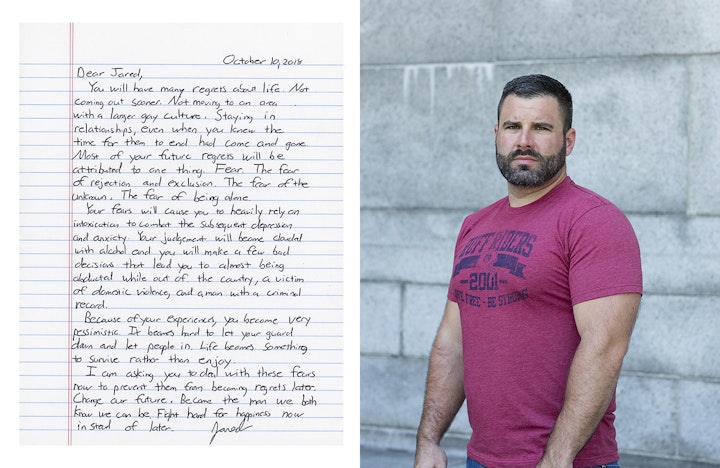 October 10, 2018
Dear Jared,
You will have many regrets about life. Not
coming out sooner. Not moving to an area
with a larger gay culture. Staying in
relationships, even when you knew the
time for them to end had come and gone.
Most of your future regrets will be
attributed to one thing. Fear. The fear
of rejection and exclusion. The fear of the
unknown. The fear of being alone.
Your fears will cause you to heavily rely on
intoxication to combat the subsequent depression
and anxiety. Your judgement will become clouded
with alcohol and you will make a few bad
decisions that lead you to almost being
abducted while out of the country, a victim
of domestic violence, and a man with a criminal
record.
Because of your experiences, you become very
pessimistic. It becomes hard to let your guard
down and let people in. Life becomes something
to survive rather than enjoy.
I am asking you to deal with these fears
now to prevent them from becoming regrets later.
Change our future. Become the man we both
know we can be. Fight hard for happiness now
instead of later. Jared
RIDERS
2001
FREE - BE STRONG